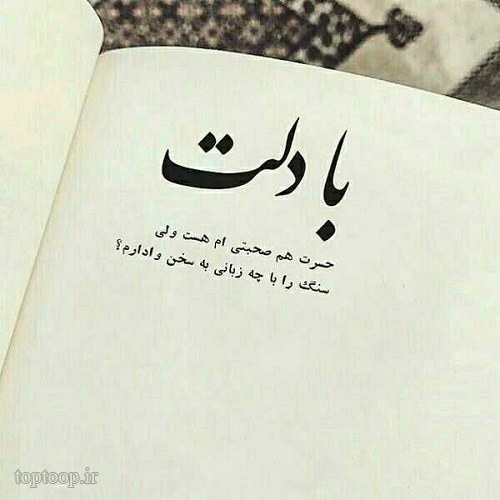 با دلت
حسرت هم صحبتی ام هست ولی
سنگ را با چه زبانی به سخن وادارم؟
toptoop.ir